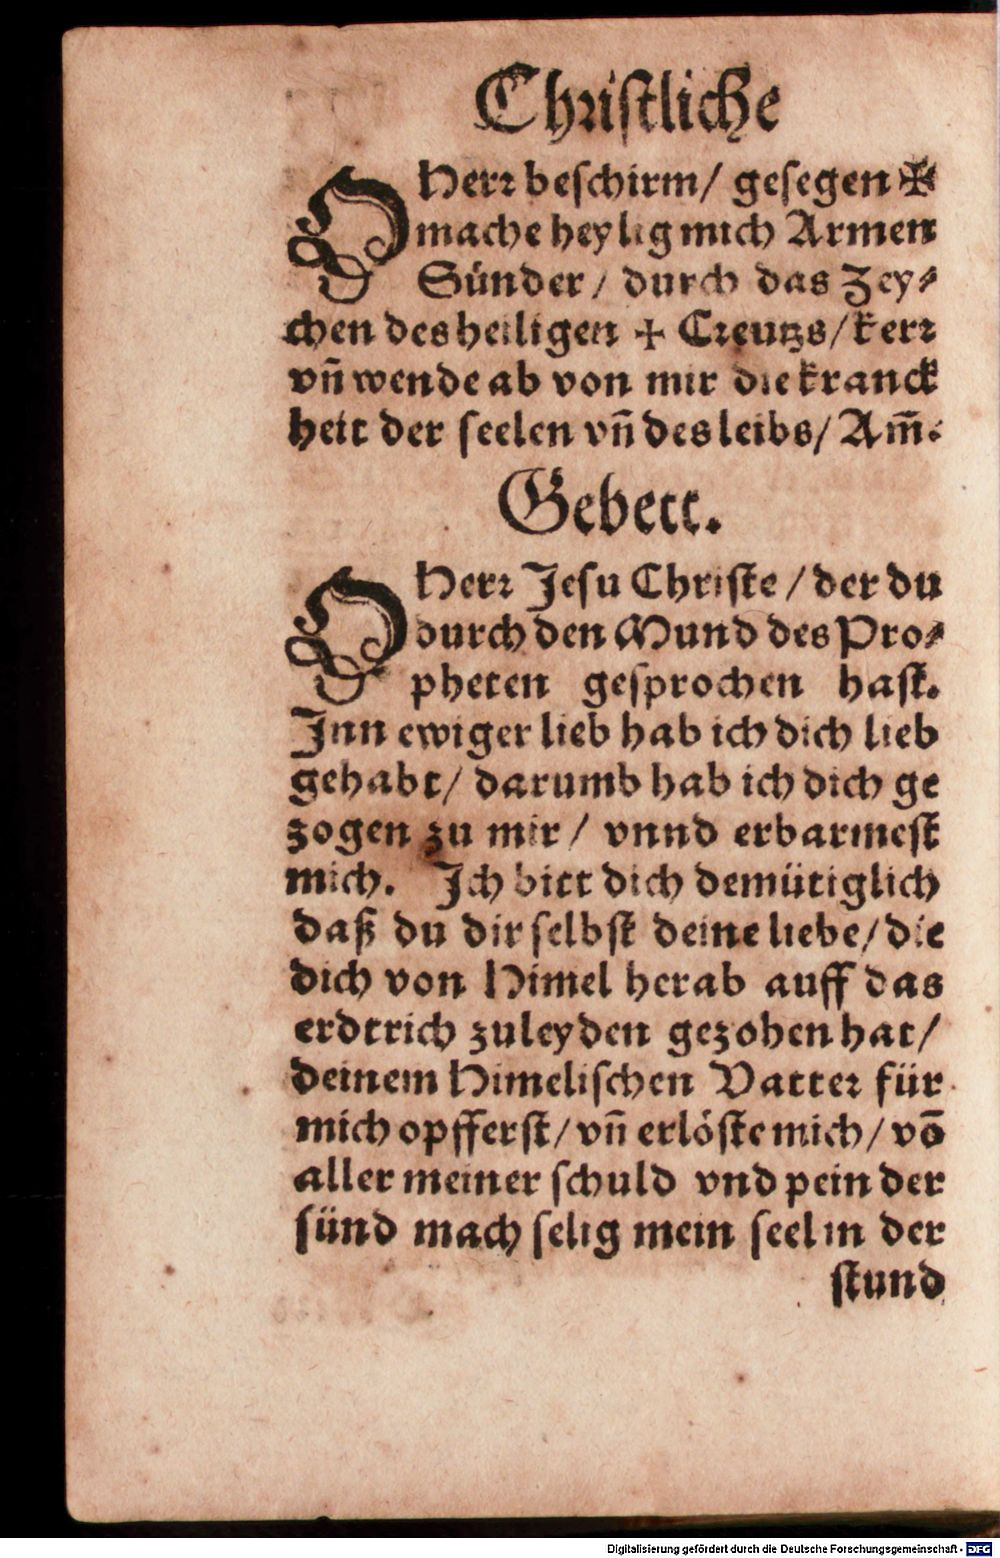 Christliche
O Herr beschirm/ gesegen ✠
mache heylig mich Armen
Sünder/ durch das Zey⸗
chen des heiligen + Creutzs/ kerr
vñ wende ab von mir die kranck
heit der seelen vñ des leibs/ Am̃.
Gebett.
O Herr Jesu Christe/ der du
durch den Mund des Pro⸗
pheten gesprochen hast.
Inn ewiger lieb hab ich dich lieb
gehabt/ darumb hab ich dich ge
zogen zu mir/ vnnd erbarmest
mich. Ich bitt dich demütiglich
daß du dir selbst deine liebe/ die
dich von Himel herab auff das
erdtrich zuleyden gezohen hat/
deinem Himelischen Vatter für
mich opfferst/ vñ erlöste mich/ võ
aller meiner schuld vnd pein der
sünd mach selig mein seel in der
stund
Digitalisierung gefördert durch die Deutsche Forschungsgemeinschaft - DFG